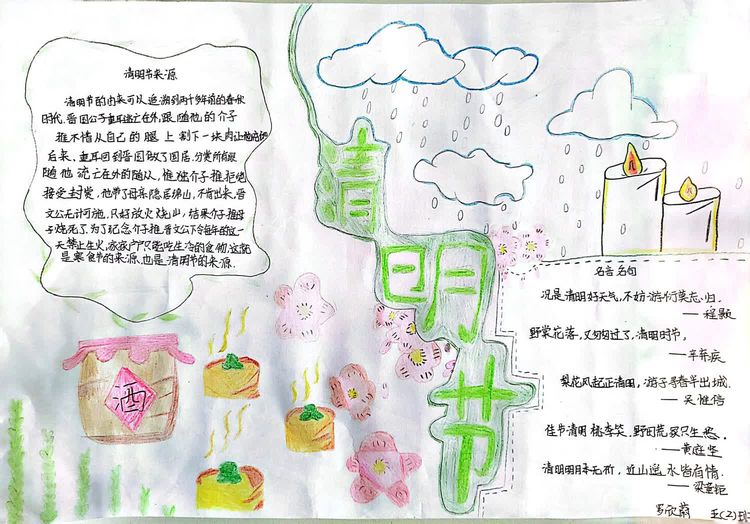 清明节来源
清明节的由来可以追溯到两千多年前的春秋
时代,晋国公子重耳逃亡在外,跟随他的介子
推不惜从自己的腿上割下一块肉让他充饥
后来,重耳回到晋国做了国君,分赏所有跟
随他逃亡在外的随从,惟独介子推拒绝
接受封赏,他带了母亲隐居绵山,不肯出来,晋
文公无计可施,只好放火烧山,结果介子推母
子烧死了,为了纪念介子推,晋文公下令每年的这一
天禁止生火,家家户户只能吃生冷的食物,这就
是寒食节的来源,也是清明节的来源.
清
明
节
酒
名言名句
况是清明好天气,不妨游衍莫忘归.
——程颢
野棠花落,又匆匆过了,清明时节,
——辛弃疾
梨花风起正清明,游子寻春半出城.
——吴惟信
佳节清明桃李笑,野田荒冢只生愁.
——黄庭坚
近山遥水皆有情.